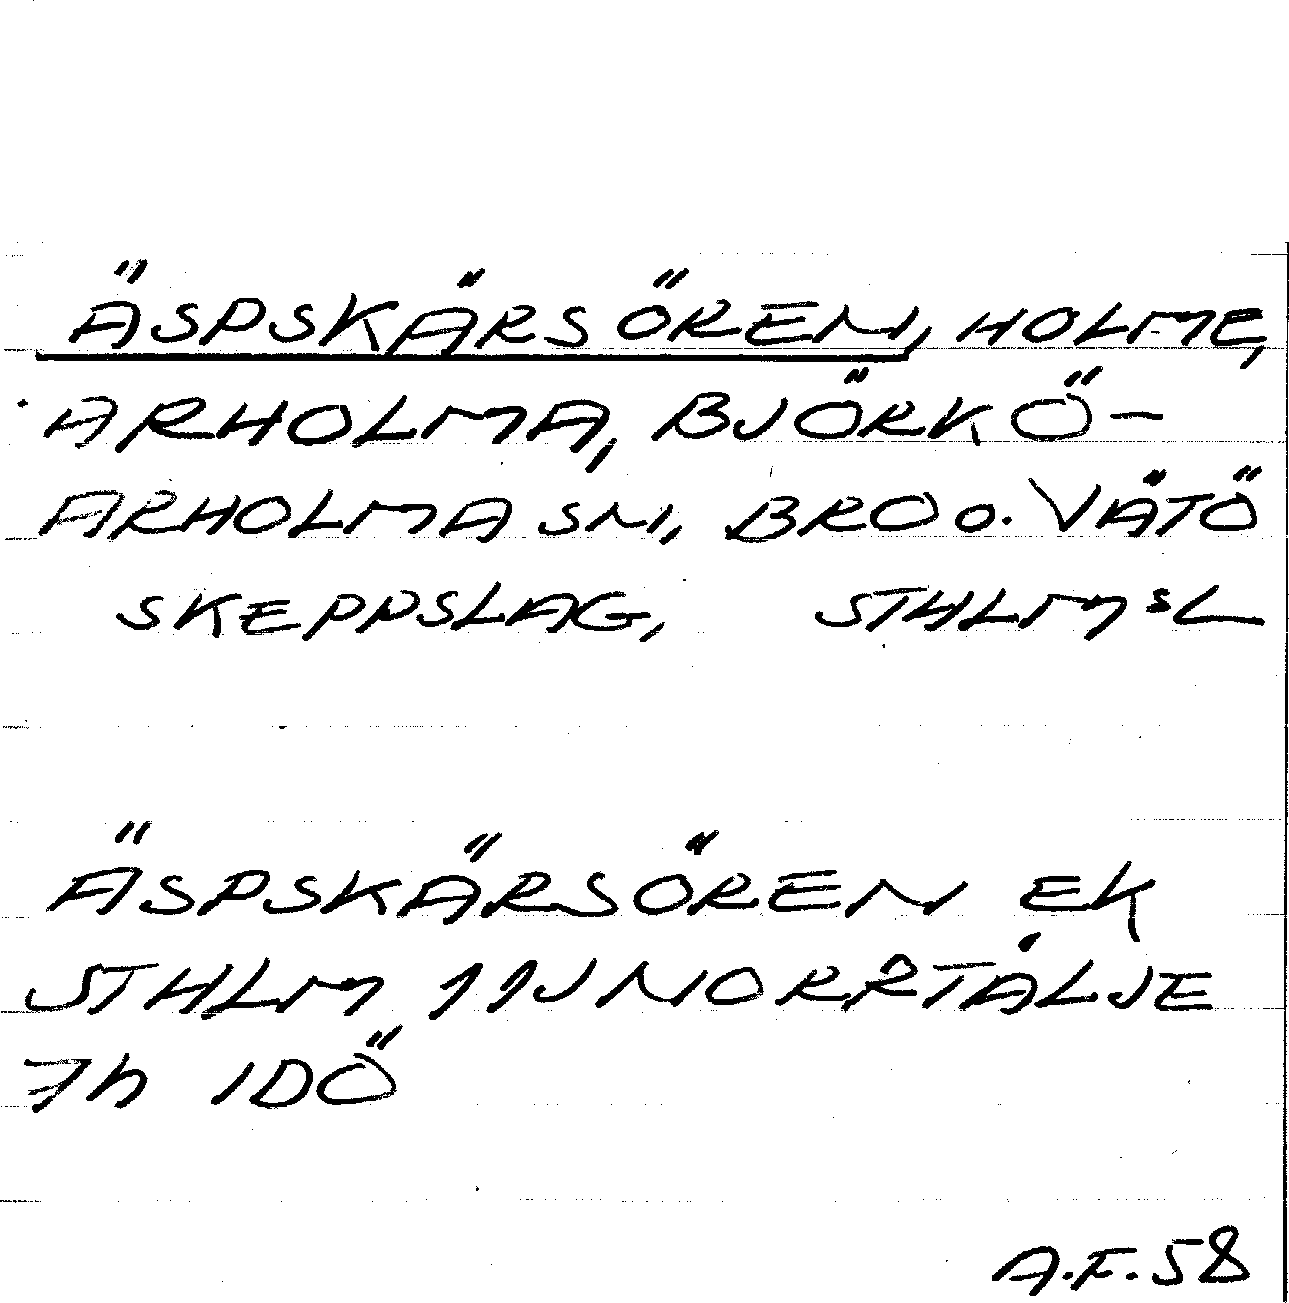 ÄSPSKÄRSÖREN, HOLME,
ARHOLMA, BJÖRKÖ-
ARHOLMA SN, BRO o. VÄTÖ
SKEPPSLAG, STHLMS L
ÄSPSKÄRSÖREN EK
STHLM 11J NORRTÄLJE
7h IDÖ
A.F. 58